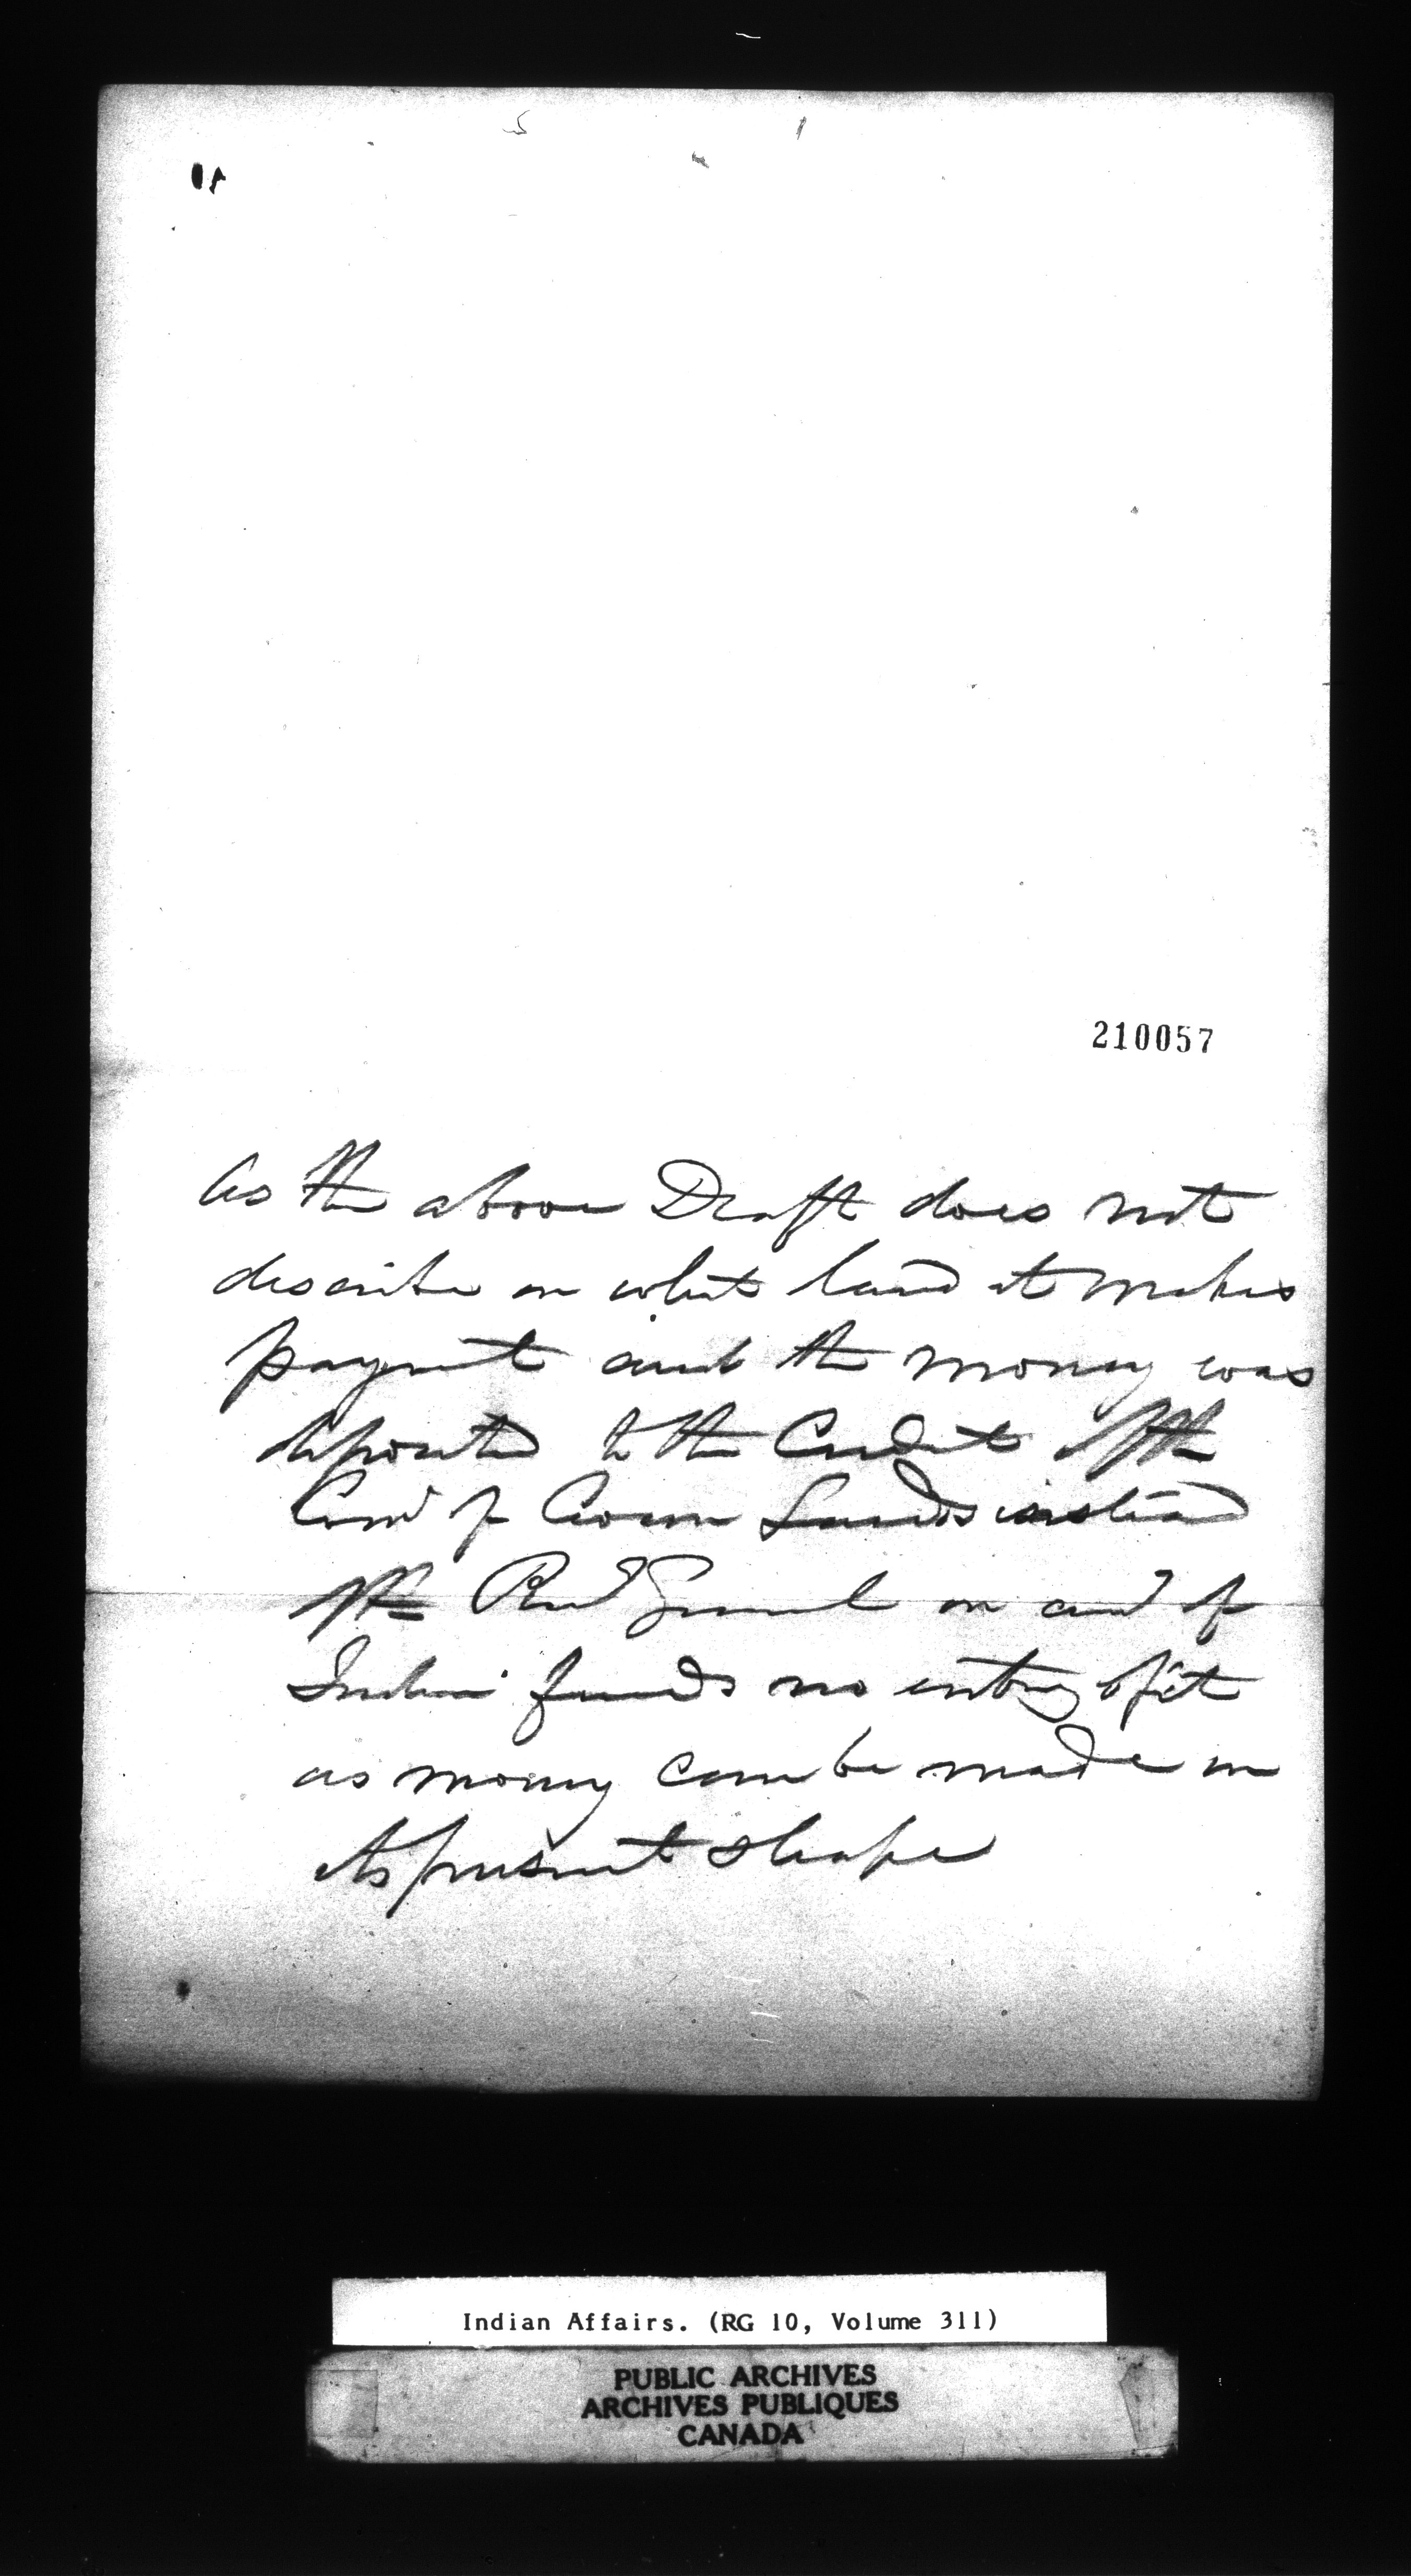 210057
As the above Draft does not
describe on what land it makes
payment and the money was
deposited to the Credit of the
Com^r of Crown Lands instead
of the Rec^r General on acc^t of
Indian funds no entry of it
as money can be made in
its present shape
Indian Affairs. (RG 10, Volume 311)
PUBLIC ARCHIVES
ARCHIVES PUBLIQUES
CANADA